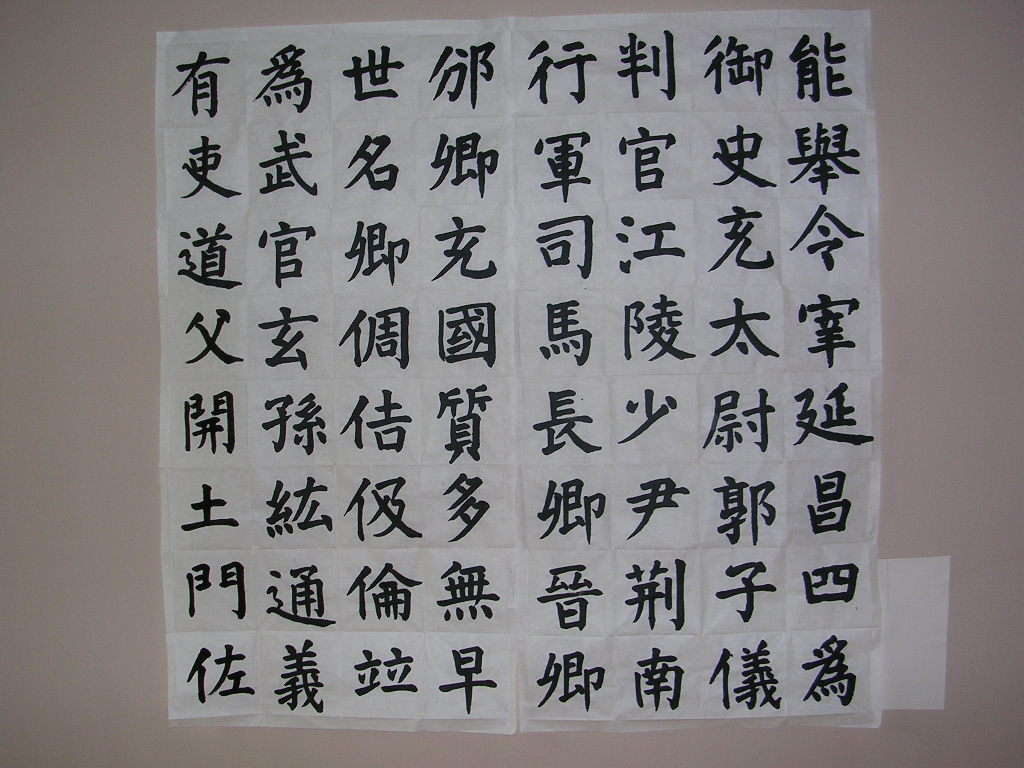 能舉令宰延昌四為
御史充太尉郭子儀
判官江陵少尹荆南
行軍司馬長卿晉卿
邠卿充國質多無早
世名卿倜佶伋倫竝
為武官玄孫紘通義
有吏道父開土門佐